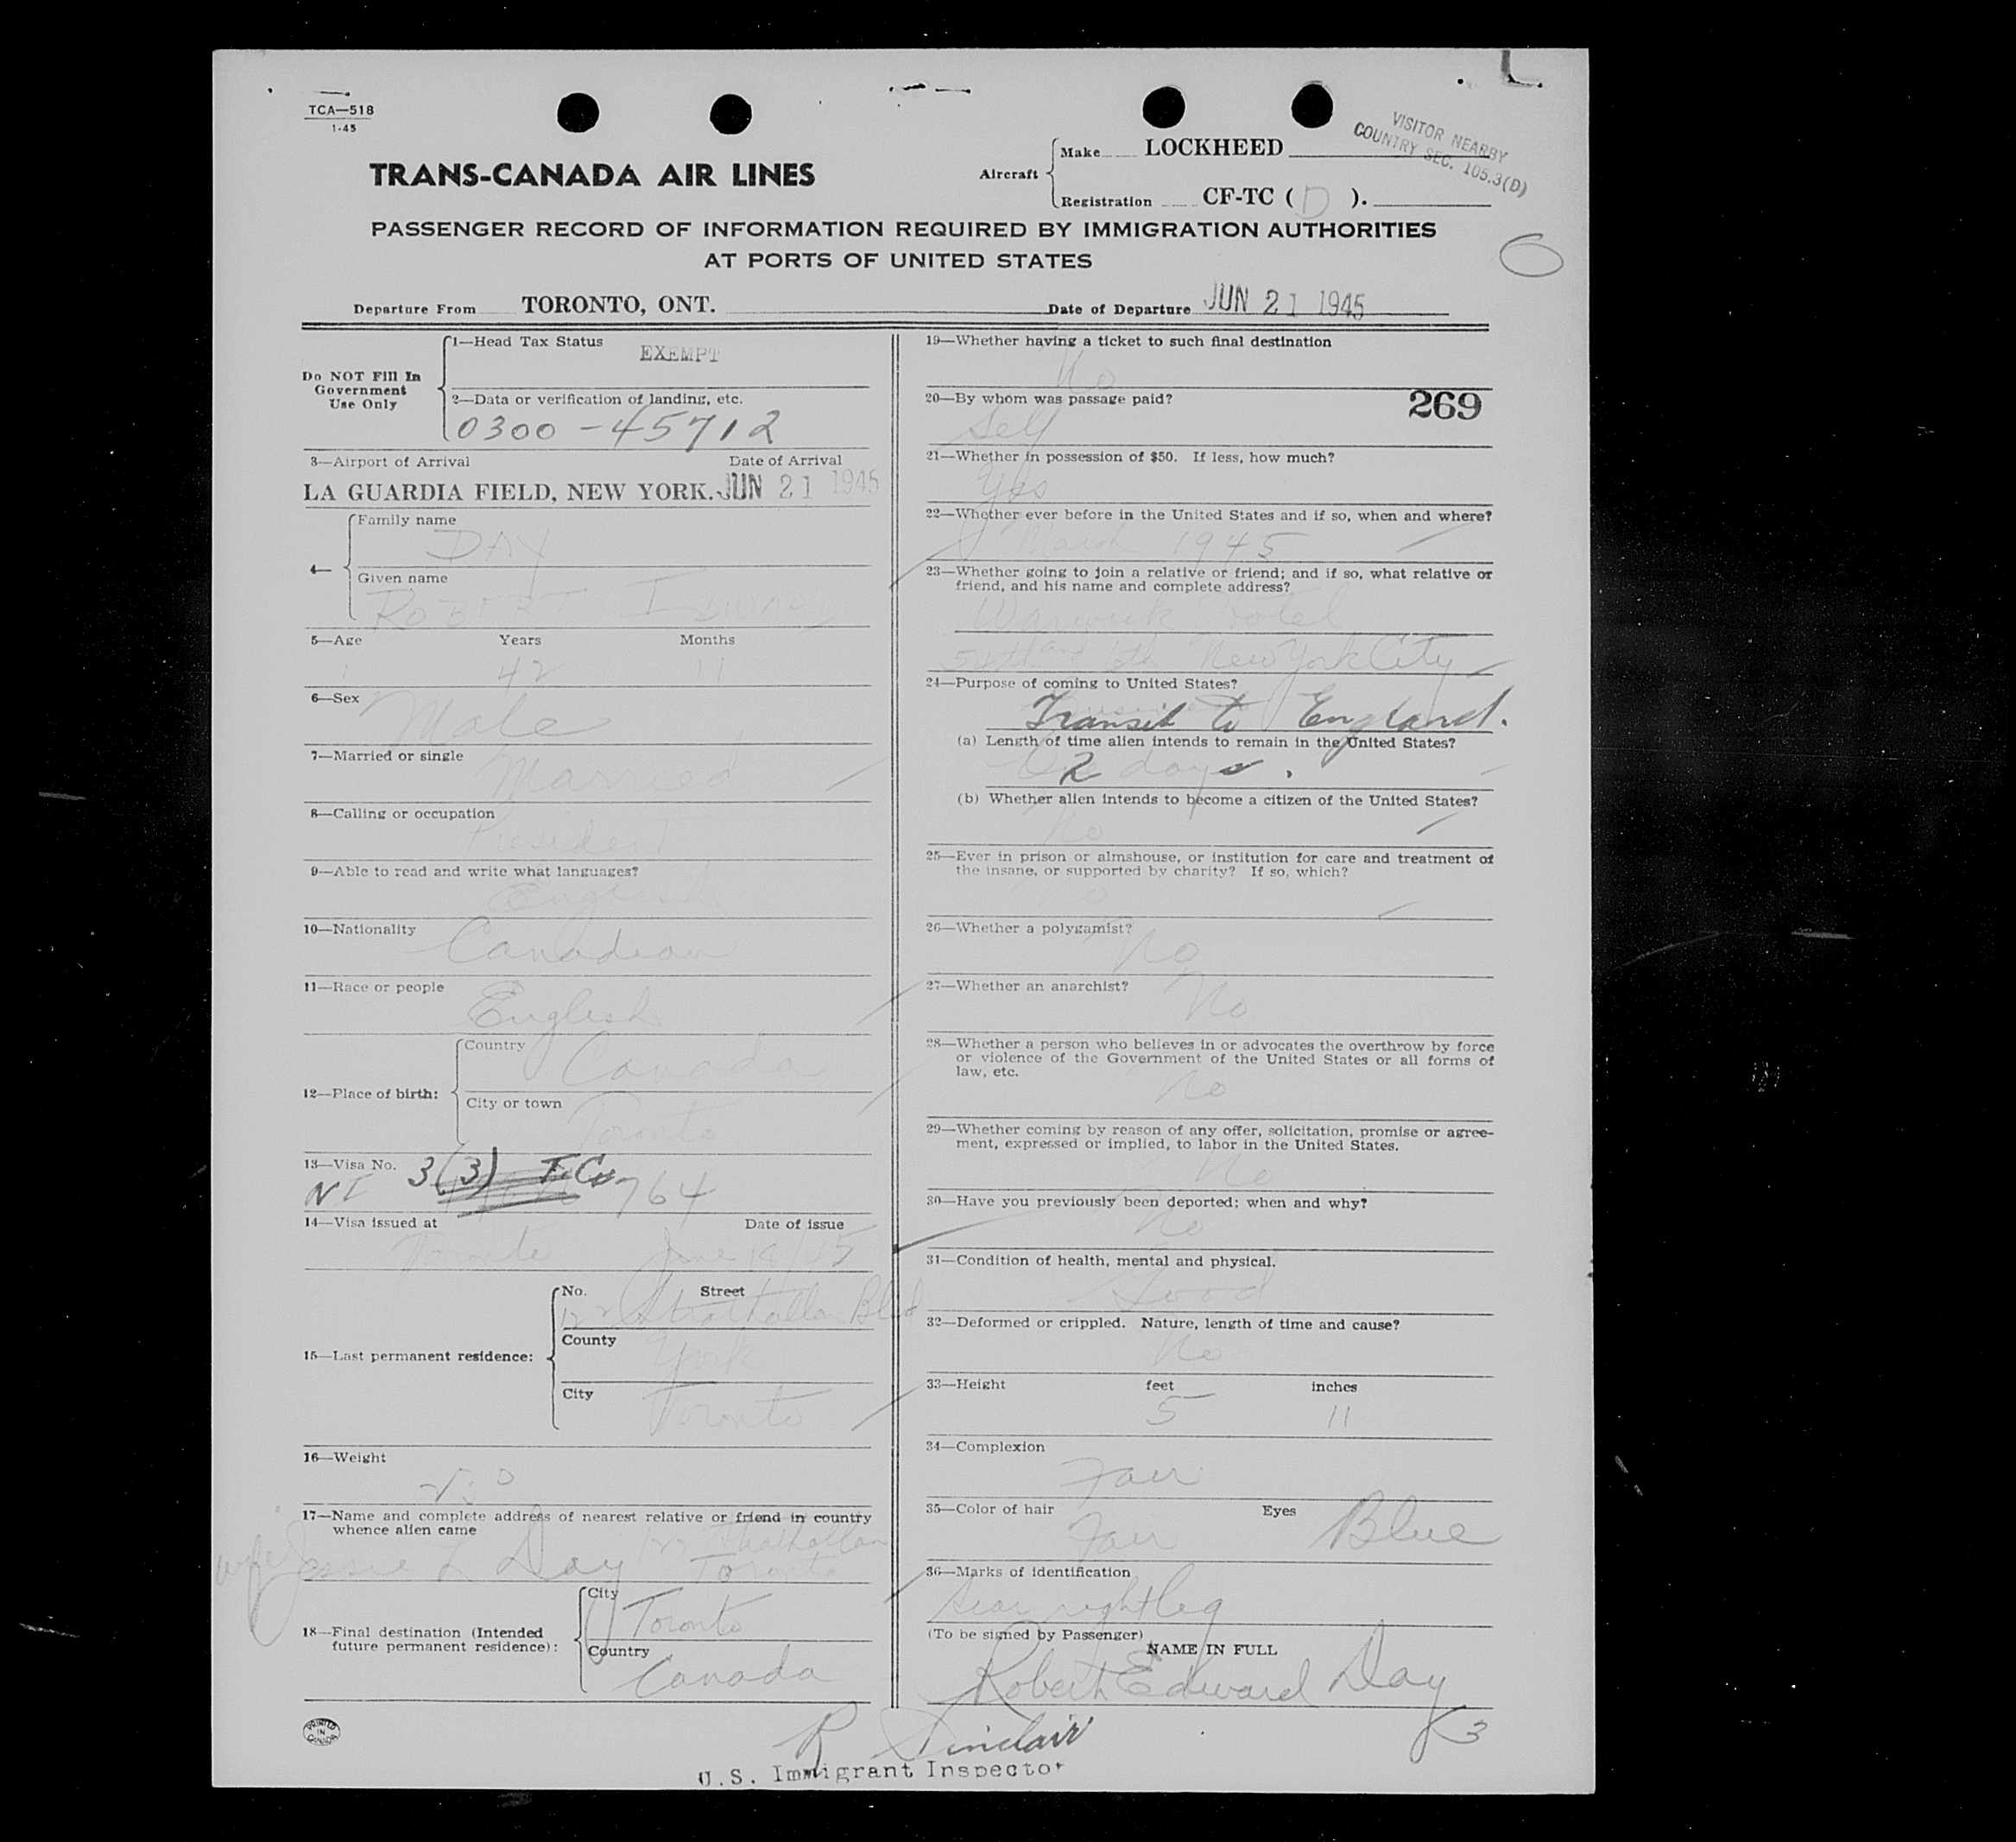 TCA—518
1-45
VISITOR NEARBY
COUNTRY SEC. 105.3(D)
TRANS-CANADA AIR LINES
Aircraft
Make LOCKHEED
Registration CF-TC ( D ).
PASSENGER RECORD OF INFORMATION REQUIRED BY IMMIGRATION AUTHORITIES
AT PORTS OF UNITED STATES
Departure From TORONTO, ONT. Date of Departure JUN 21 1945
Do NOT Fill In
Government
Use Only
1—Head Tax Status
EXEMPT
2—Data or verification of landing, etc.
0300 - 45712
3—Airport of Arrival Date of Arrival
LA GUARDIA FIELD, NEW YORK. JUN 21 1945
4—
Family name
DAY
Given name
ROBERT
5—Age Years Months
42 11
6—Sex
Male
7—Married or single
Married
8—Calling or occupation
President
9—Able to read and write what languages?
English
10—Nationality
Canadian
11—Race or people
English
12—Place of birth:
Country
Canada
City or town
Toronto
13—Visa No. 3(3)
NI 764
14—Visa issued at Date of issue
Toronto June
15—Last permanent residence:
No. Street
122 Strathallan Blvd
County
York
City
Toronto
16—Weight
17—Name and complete address of nearest relative or friend in country
whence alien came
122 Strathallan
wife Jessie L Day Toronto
18—Final destination (Intended
future permanent residence):
City
Toronto
Country
Canada
19—Whether having a ticket to such final destination
No
20—By whom was passage paid?
269
Self
21—Whether in possession of $50. If less, how much?
Yes
22—Whether ever before in the United States and if so, when and where?
March 1945
23—Whether going to join a relative or friend; and if so, what relative or
friend, and his name and complete address?
Warwick Hotel
54th and 6th New York City
24—Purpose of coming to United States?
Transit to England.
(a) Length of time alien intends to remain in the United States?
2 days.
(b) Whether alien intends to become a citizen of the United States?
No
25—Ever in prison or almshouse, or institution for care and treatment of
the insane, or supported by charity? If so, which?
No
26—Whether a polygamist?
No
27—Whether an anarchist?
No
28—Whether a person who believes in or advocates the overthrow by force
or violence of the Government of the United States or all forms of
law, etc.
No
29—Whether coming by reason of any offer, solicitation, promise or agree-
ment, expressed or implied, to labor in the United States.
No
30—Have you previously been deported; when and why?
No
31—Condition of health, mental and physical.
Good
32—Deformed or crippled. Nature, length of time and cause?
No
33—Height feet inches
5 11
34—Complexion
Fair
35—Color of hair Eyes
Fair Blue
36—Marks of identification
Scar right leg
(To be signed by Passenger)
NAME IN FULL
Robert Edward Day
3
PRINTED
IN
CANADA
R Sinclair
U.S. Immigrant Inspector